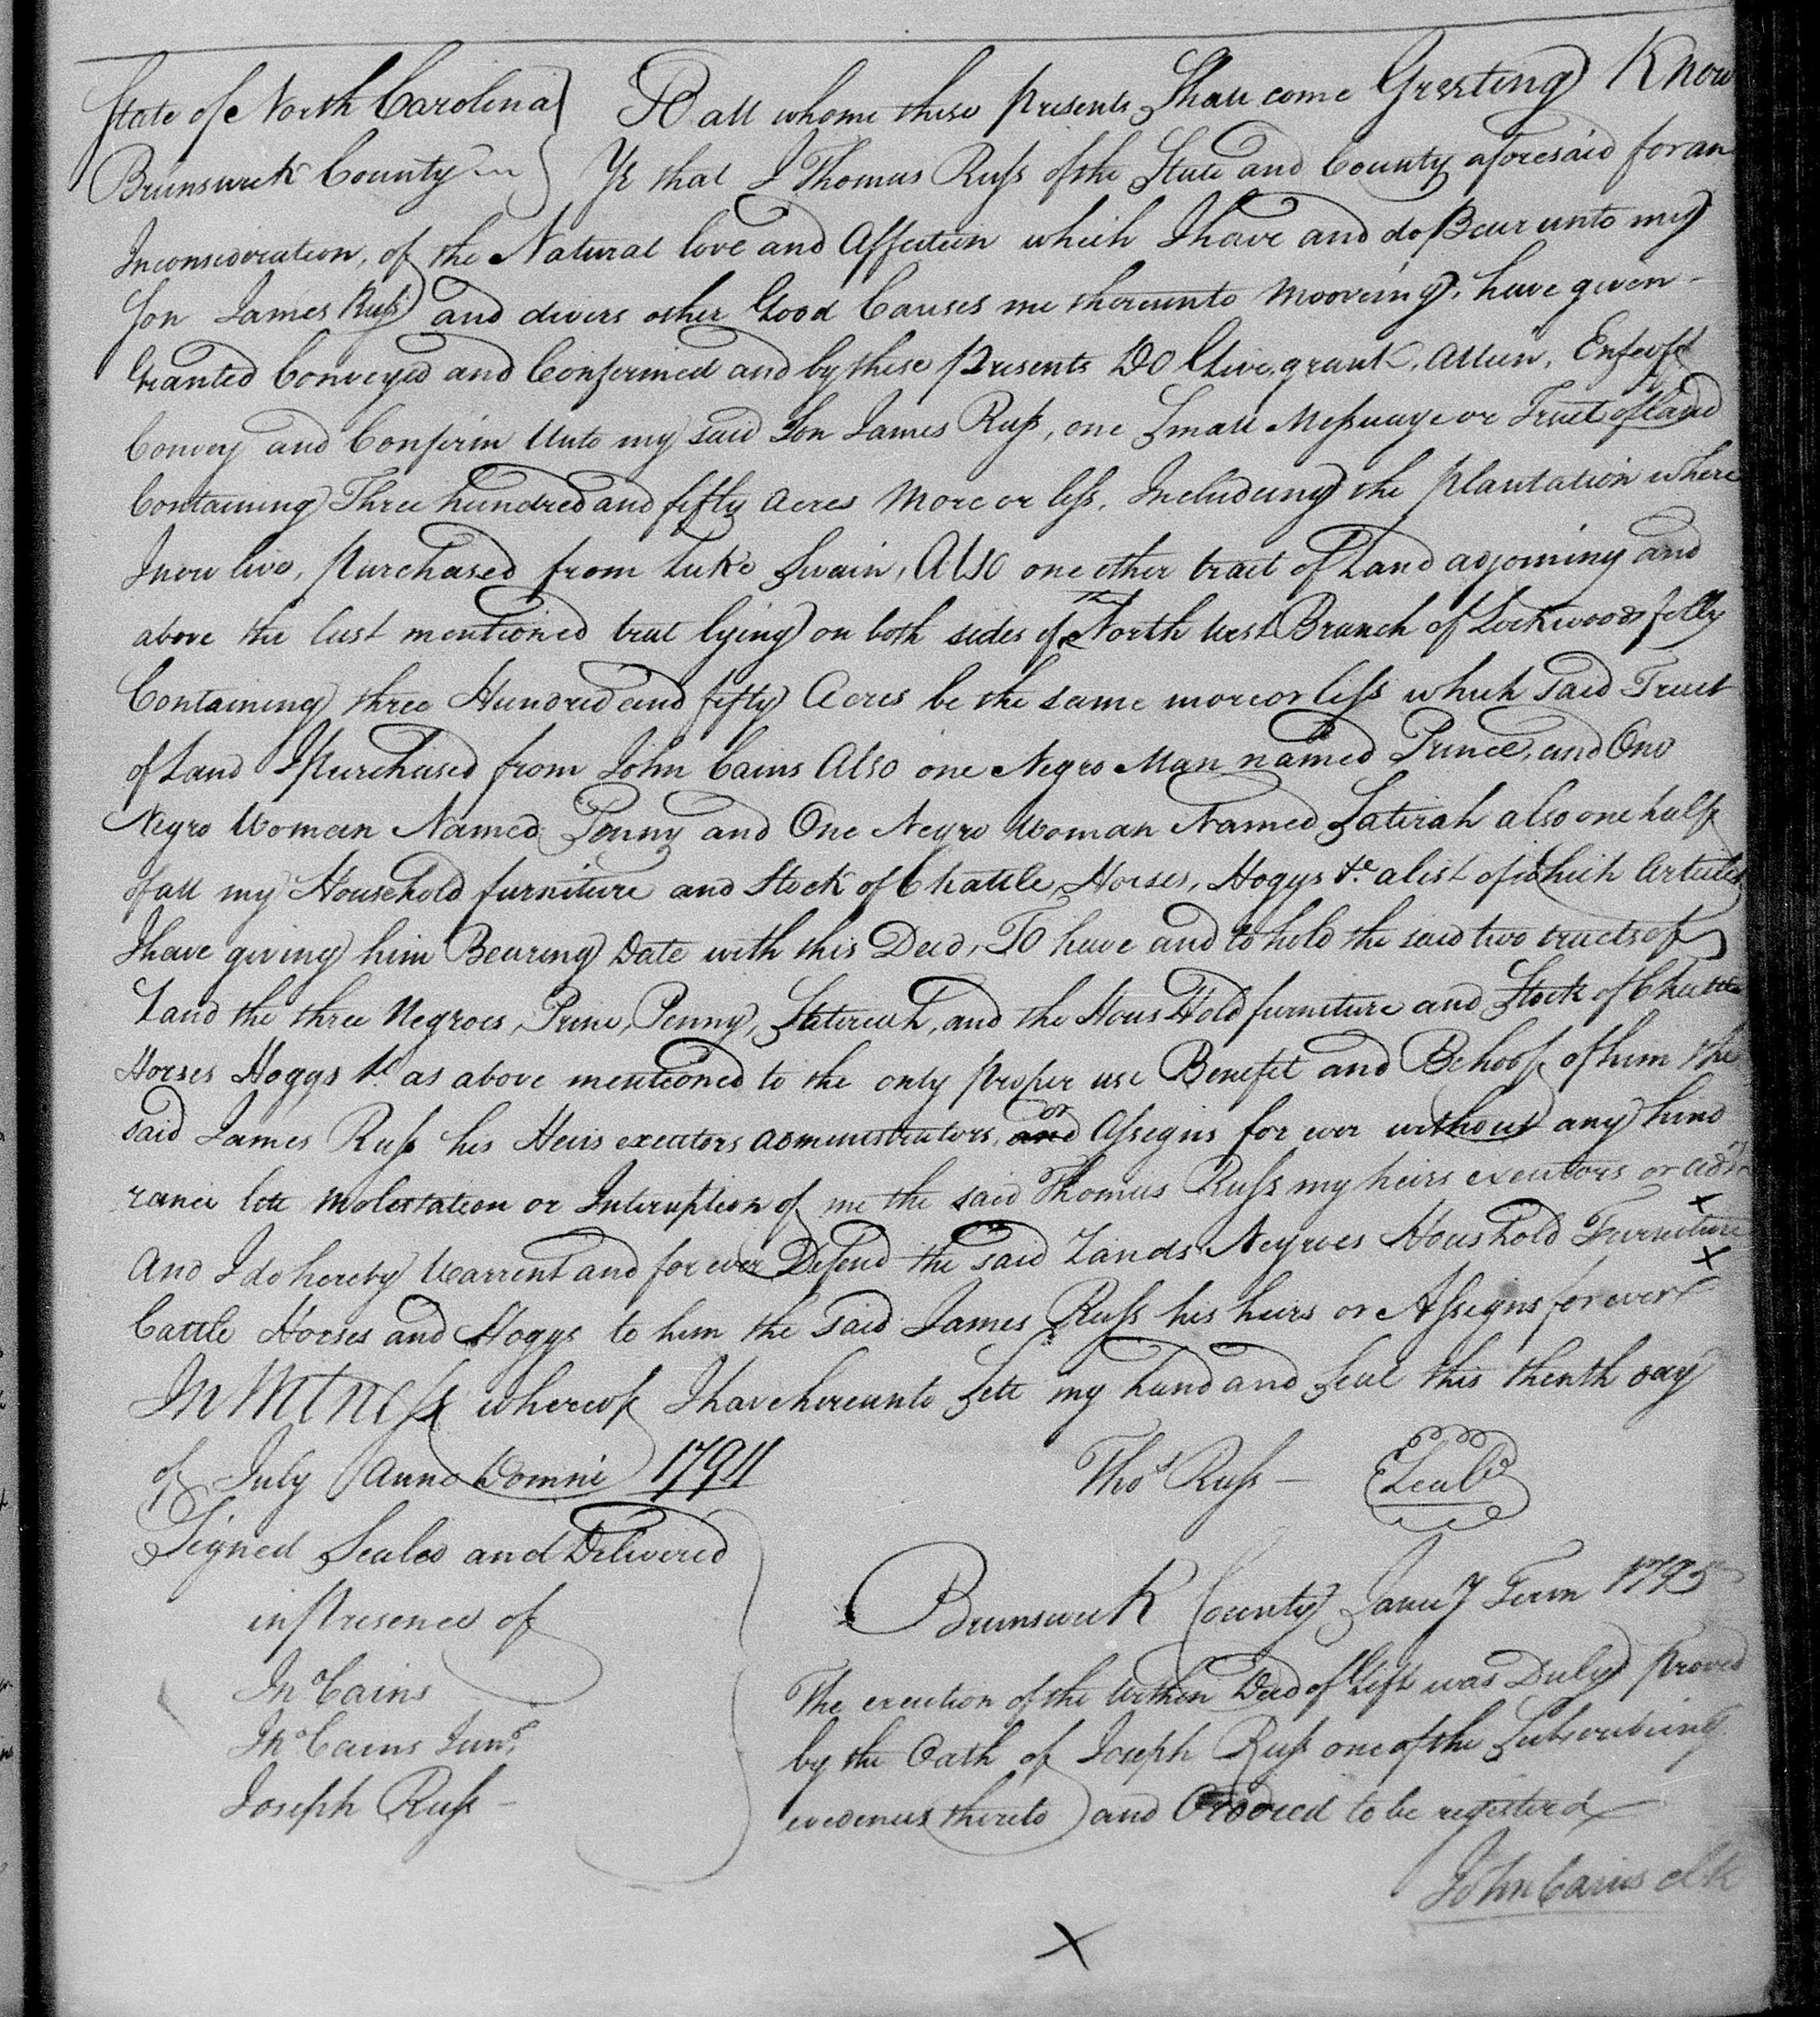 State of North Carolina To all whome these presents Shall come Greeting Know
Brunswick County Ye that I Thomas Russ of the State and County aforesaid for an
Inconsideration, of the Natural love and Affection which I have and do Bear unto my
Son James Russ and divers other Good Causes me thereunto Mooveing, have given -
Granted Conveyed and Confirmed and by these presents Do Give, grant, Alien, Enfeoff
Convey and Confirm Unto my said Son James Russ, one Small Messuage or Tract of Land
Containing Three hundred and fifty Acres More or less, Includeing the plantation where
I now live, purchased from Luke Swain, Also one other tract of Land adjoining and
above the last mentioned trat lying on both sides of The North West Branch of Lockwoods folly
Containing three Hundred and fifty Acres be the same more or less which said Tract
of Land I purchased from John Cains Also one Negro Man named Prince, and One
Negro Woman Named Penny and One Negro Woman Named Satirah also one half
of all my Household furniture and Stock of Chattle, Horses, Hoggs &c a list of which Articles
I have giving him Bearing Date with this Deed, To have and to hold the said two tracts of
Land the three Negroes, Prine, Penny, Satereah, and the Hous Hold furniture and Stock of Chattle
Horses Hoggs &c as above mentioned to the only proper use Benefit and Behoof of him the
said James Russ his Heirs executors administrators, and or Assigns for ever without any hind
rance lett Molestation or Interuption of me the said Thomas Russ my heirs executors or adm
And I do hereby Warrent and for ever Defend the said Lands Negroes Houshold Furniture
Cattle Horses and Hoggs to him the said James Russ his heirs or Assigns for ever
In Witness whereof I have hereunto Sett my hand and Seal this thenth day
of July Anno Domni 1794
Thos Russ - Seal
Signed Sealed and Delivered
in presence of
Jno Cains
Jno Cains Junr
Joseph Russ -
Brunswick County Januy Term 1795
The execution of the within Deed of Gift was Duly proved
by the Oath of Joseph Russ one of the Subscribeing
evedences thereto and Ordered to be registerd
John Cains Clk